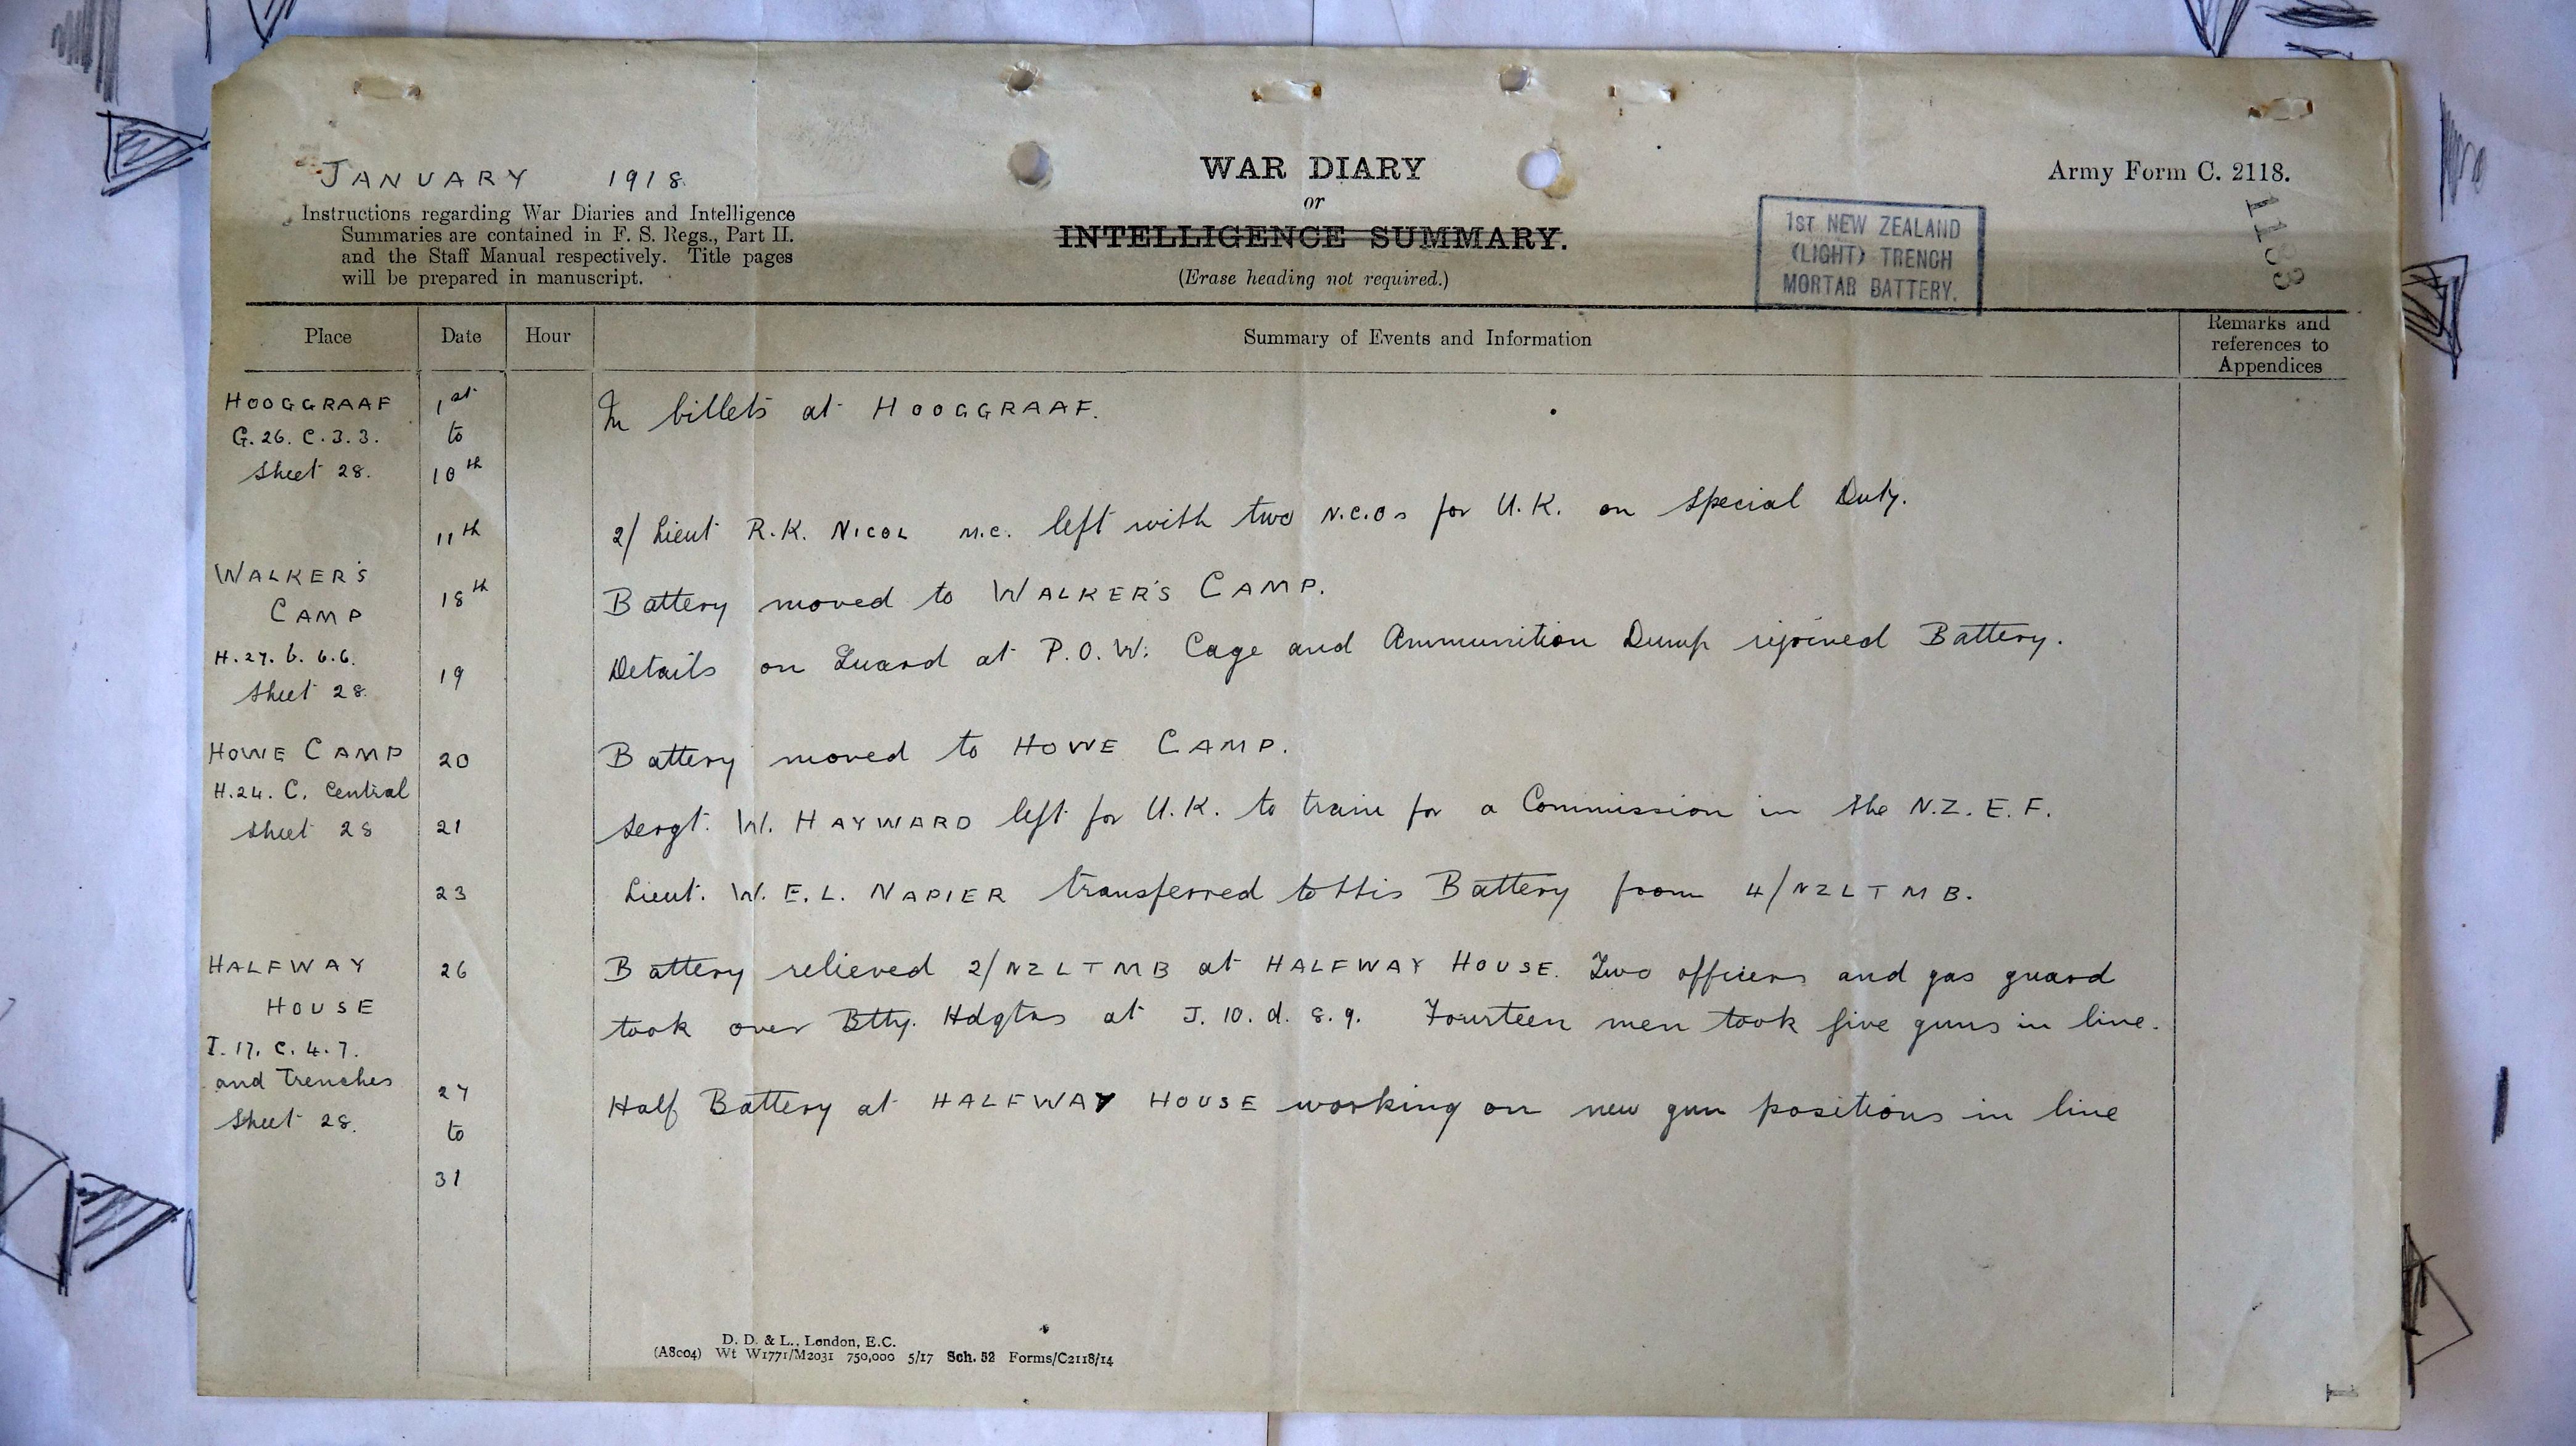 JANUARY 1918
WAR DIARY
or
INTELLIGENCE SUMMARY.
(Erase heading not required.)
Army Form C. 2118.
1183
Instructions regarding War Diaries and Intelligence
Summaries are contained in F. S. Regs., Part II.
and the Staff Manual respectively. Title pages
will be prepared in manuscript.
1ST NEW ZEALAND
(LIGHT) TRENCH
MORTAR BATTERY.
Place Date Hour Summary of Events and Information Remarks and
references to
Appendices
HOOGGRAAF 1st In billets at HOOGGRAAF.
G. 26. C. 3. 3. to
Sheet 28. 10th
11th 2/ Lieut R.K. NICOL M.C. left with two N.C.Os for U.K. on Special Duty.
WALKER'S
CAMP 18th Battery moved to WALKER'S CAMP.
H. 27. b. 6.6.
Sheet 28. 19 Details on Guard at P.O.W. Cage and Ammunition Dump rejoined Battery.
HOWE CAMP 20 Battery moved to HOWE CAMP.
H. 24. C. Central
Sheet 28 21 Sergt. W. HAYWARD left for U.K. to train for a Commission in the N.Z.E.F.
23 Lieut. W. E. L. NAPIER transferred to this Battery from 4/NZLTMB.
HALFWAY 26 Battery relieved 2/NZLTMB at HALFWAY HOUSE. Two officers and gas guard
HOUSE took over Btty. Hdqtrs at J. 10. d. 8. 9. Fourteen men took five guns in line.
I. 17. C. 4. 7.
and Trenches 27 Half Battery at HALFWAY HOUSE working on new gun positions in line
Sheet 28. to
31
D. D. & L., London, E.C.
(A8004) Wt W1771/M2031 750,000 5/17 Sch. 52 Forms/C2118/14
1